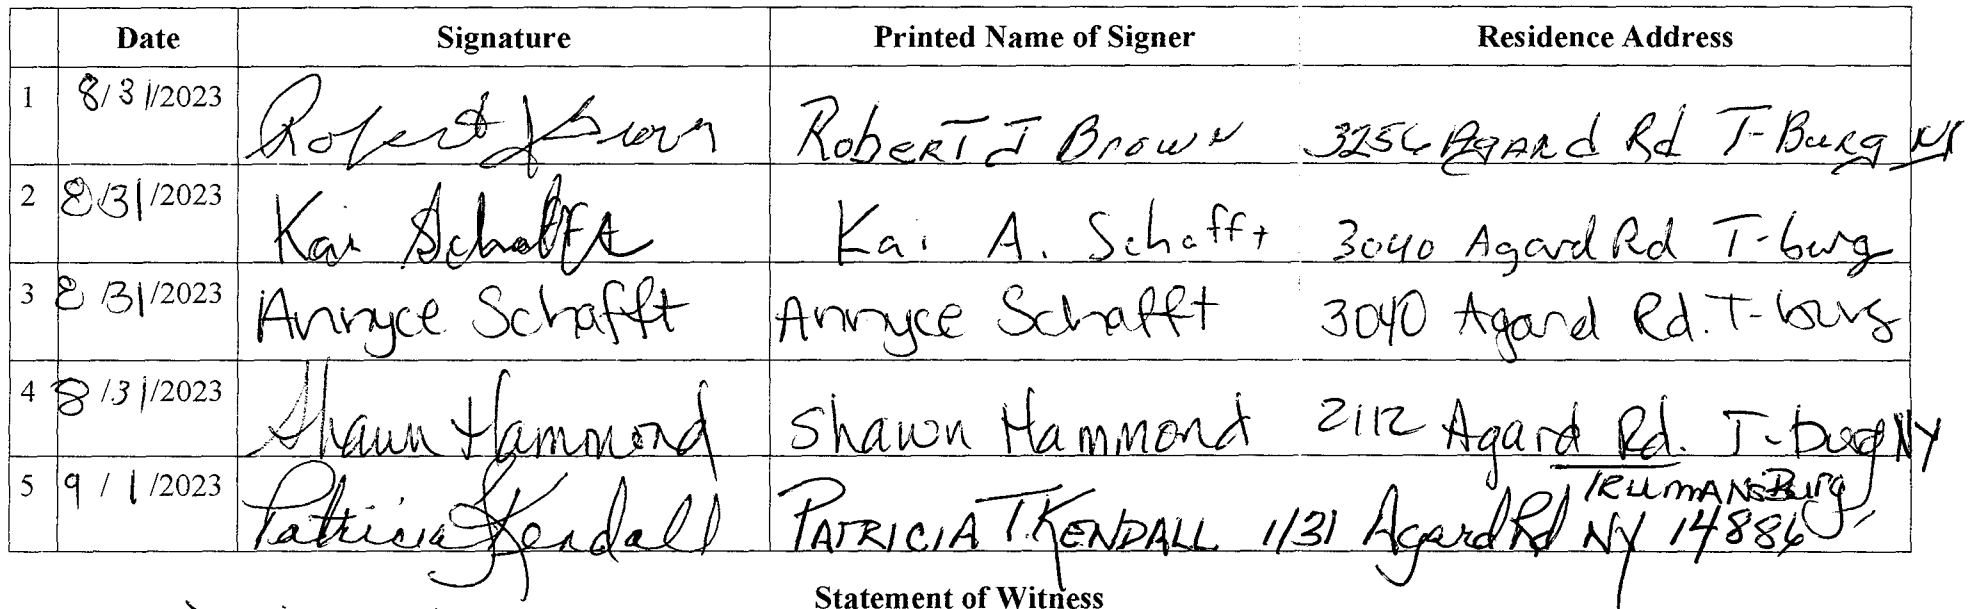 Date Signature Printed Name of Signer Residence Address
1 8/31/2023 Robert J Brown RoberT J Brown 3256 Agard Rd T-Burg NY
2 8/31/2023 Kai Schafft Kai A. Schafft 3040 Agard Rd T-burg
3 8/31/2023 Annyce Schafft Annyce Schafft 3040 Agard Rd. T-burg
4 8/31/2023 Shawn Hammond Shawn Hammond 2112 Agard Rd. T-burg NY
5 9/1/2023 Patricia Kendall PATRICIA T. KENDALL 1131 Agard Rd TRUMANSBurg, NY 14886
Statement of Witness